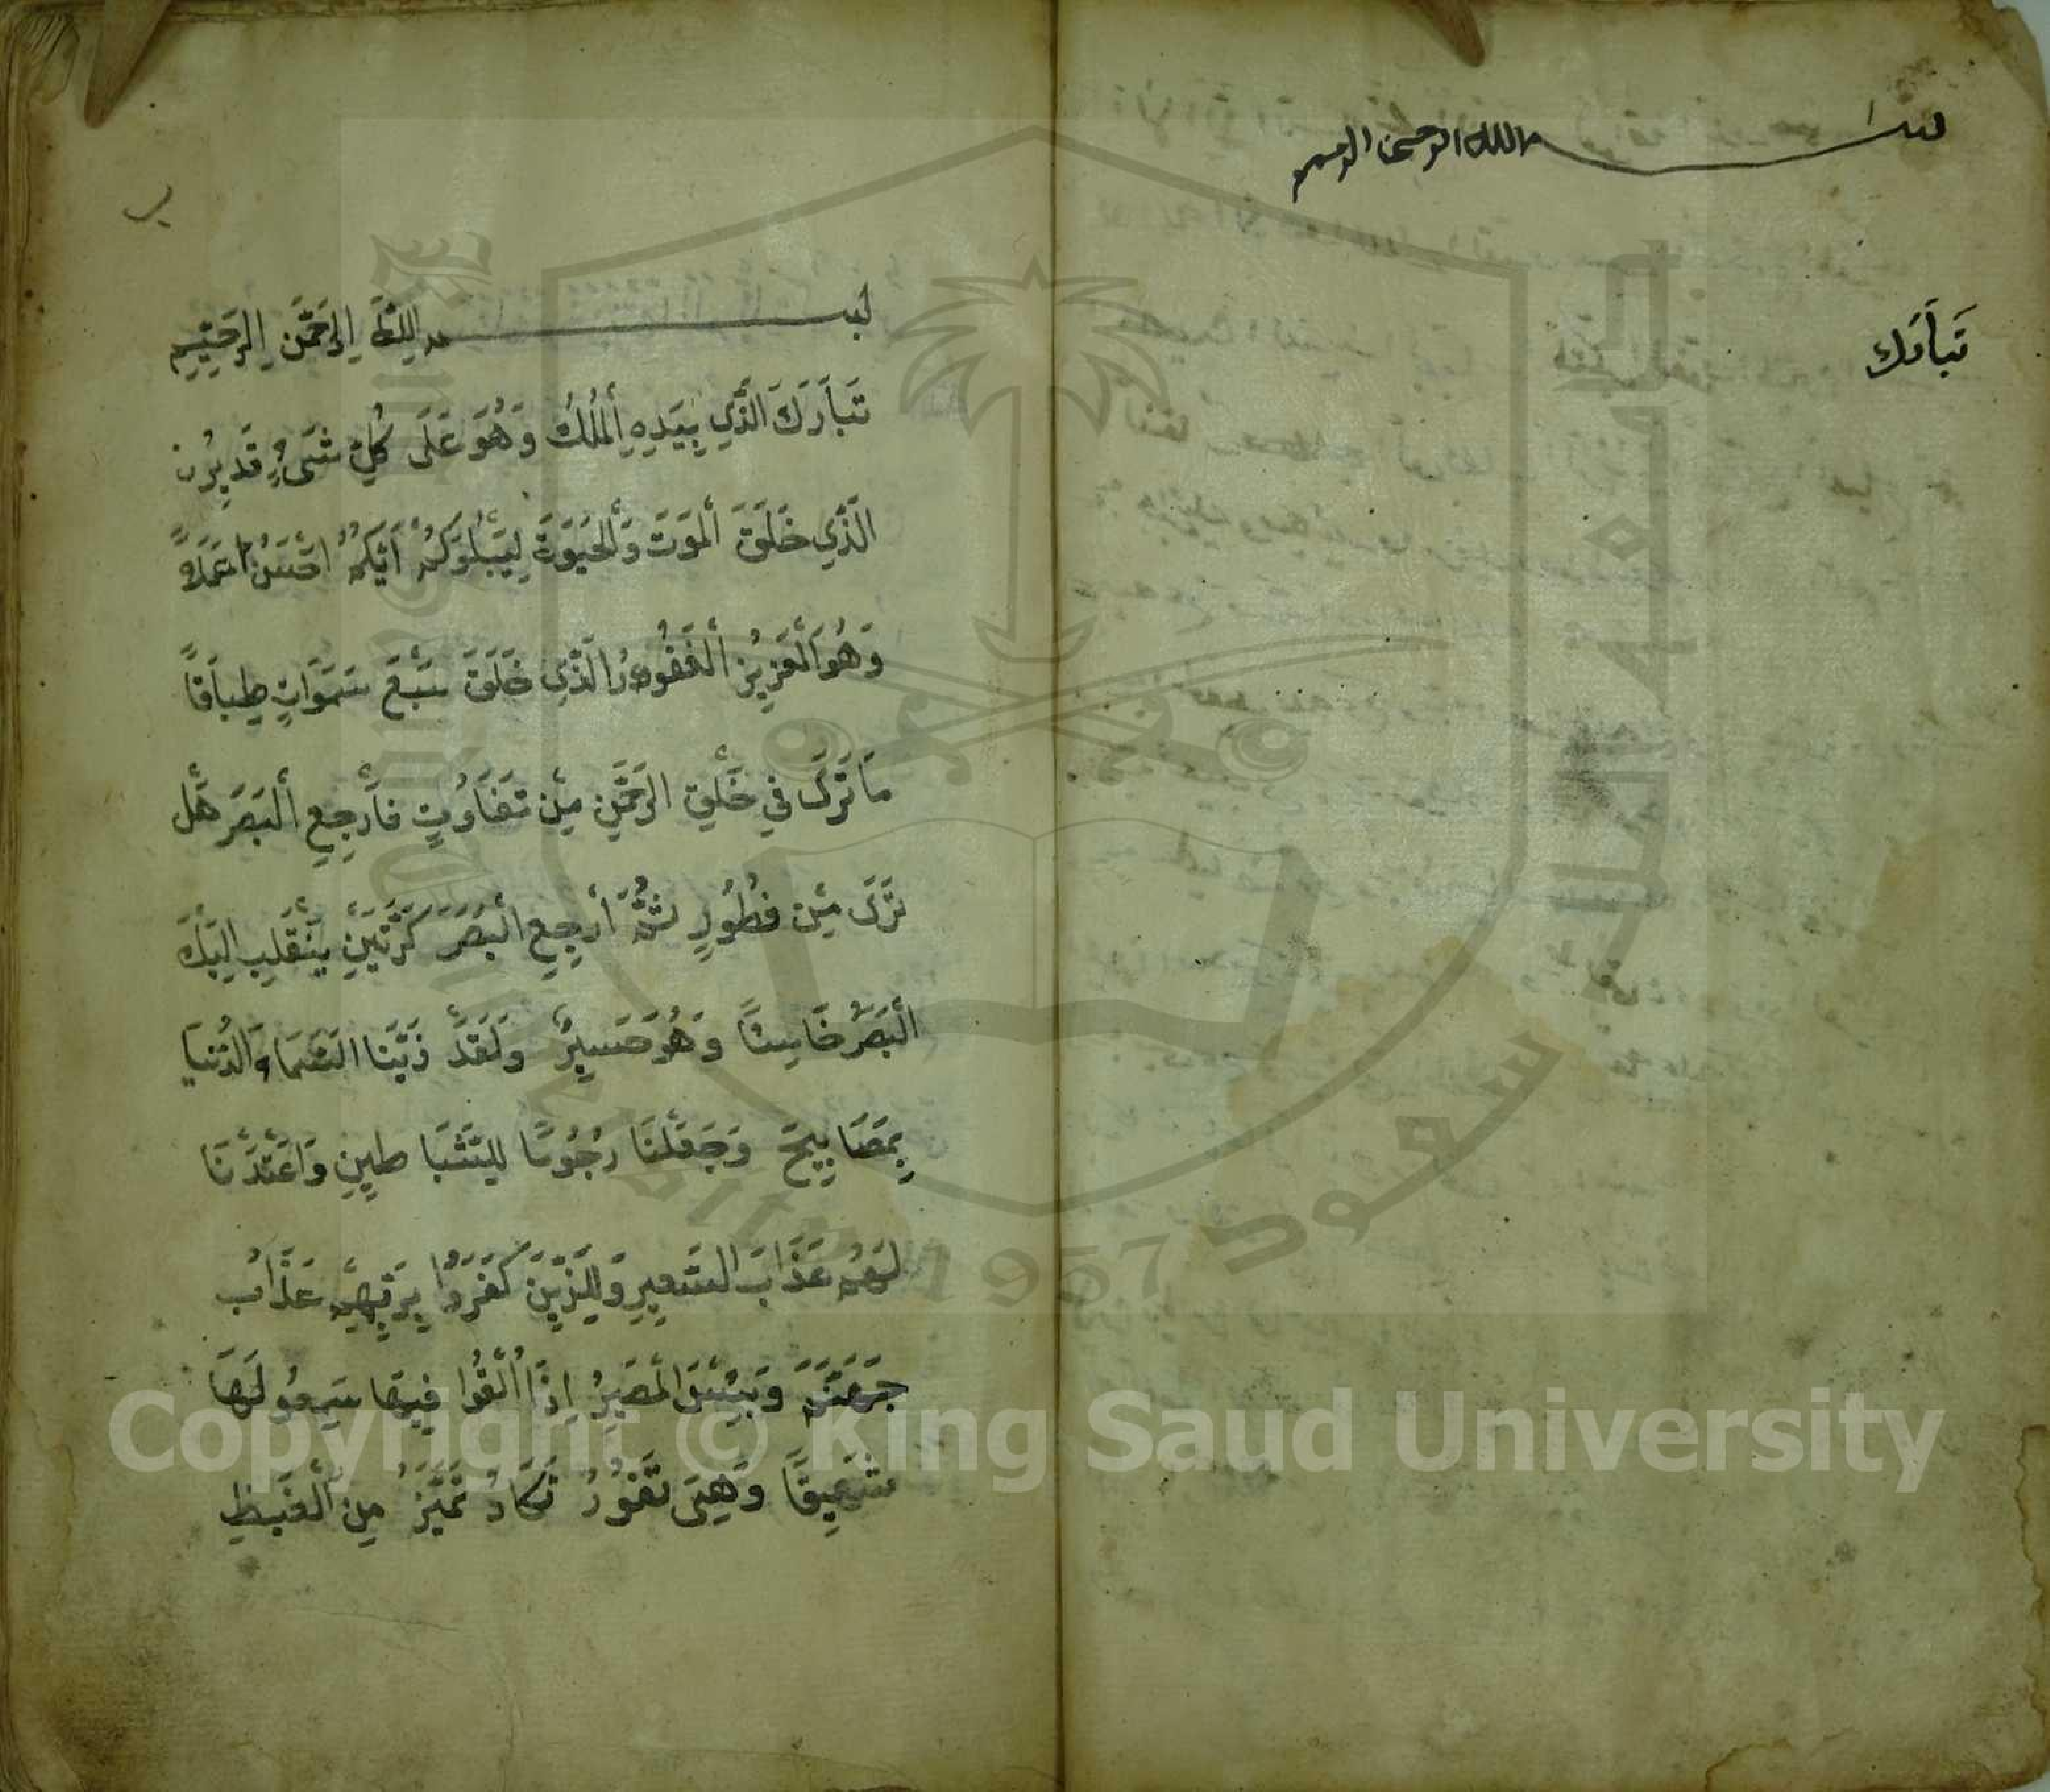 بسم الله الرحمن الرحيم
تَبَاَرَك
بسم اللهِ الرَحمَنِ الرَحِيِمِ
تَبَاَرَكَ الَّذَيِ بِيَدِهِ اِلْمُلْكُ وَهُوَ عَلَىَ كُلِّ شَىْءٍ قَدِيِرُن
الَّذَيِ خَلَقَ اَلْمَوَتَ وَاَلْحَيَوَةَ لِيَبْلُوَكُمْ اَيُّكُمْ اَحْسَنُ عَمَلاً
وَهُوَ اَلْعَزِيِزُ اَلْغَفُوُرُ الَّذَيِ خَلَقَ سَبْعَ سَمَوَاتٍ طِبَاَقاً
مَا تَرَىَ فيِ خَلْقِ الرَحْمَنِ مِنْ تَفَاَوُتٍ فَاَرْجِعِ اَلْبَصَرَ هَلْ
تَرَىَ مِنْ فُطُوُرٍ ثُمَّ اَرْجِعِ اَلْبَصَرَ كَرَّتَيْنِ يَنْقَلِب اِلَيْكَ
اَلْبَصَرُ خَاَسِئاً وَهُوَ حَسَيِرٌ وَلَقَدْ زَيَّنَا السَّمَاءَ الدُّنيَا
بِمَصَاَبِيِحَ وَجَعَلْنَا رُجُوُمًا لِلشَّيَا طِيِنِ وَاَعْتَدْنَا
لَهُمْ عَذَاَبَ السَّعِيِرِ وَلِلَّذَيِنَ كَفَرَوُا بِرَبِّهِمْ عَذَاَبُ
جَهَنَّمَ وَبِئْسَ اَلْمَصَيِرُ اِذَا اُلْقُوُا فِيِهَا سَمِعُو لَهَاَ
شَهِيِقًا وَهِىَ تَفُوُرُ تَكَاَدُ تَمَيَّزُ مِنَ اَلْغَيْظِ
Copyright © King Saud University
King Saud University
1957
جامعة الملك سعود